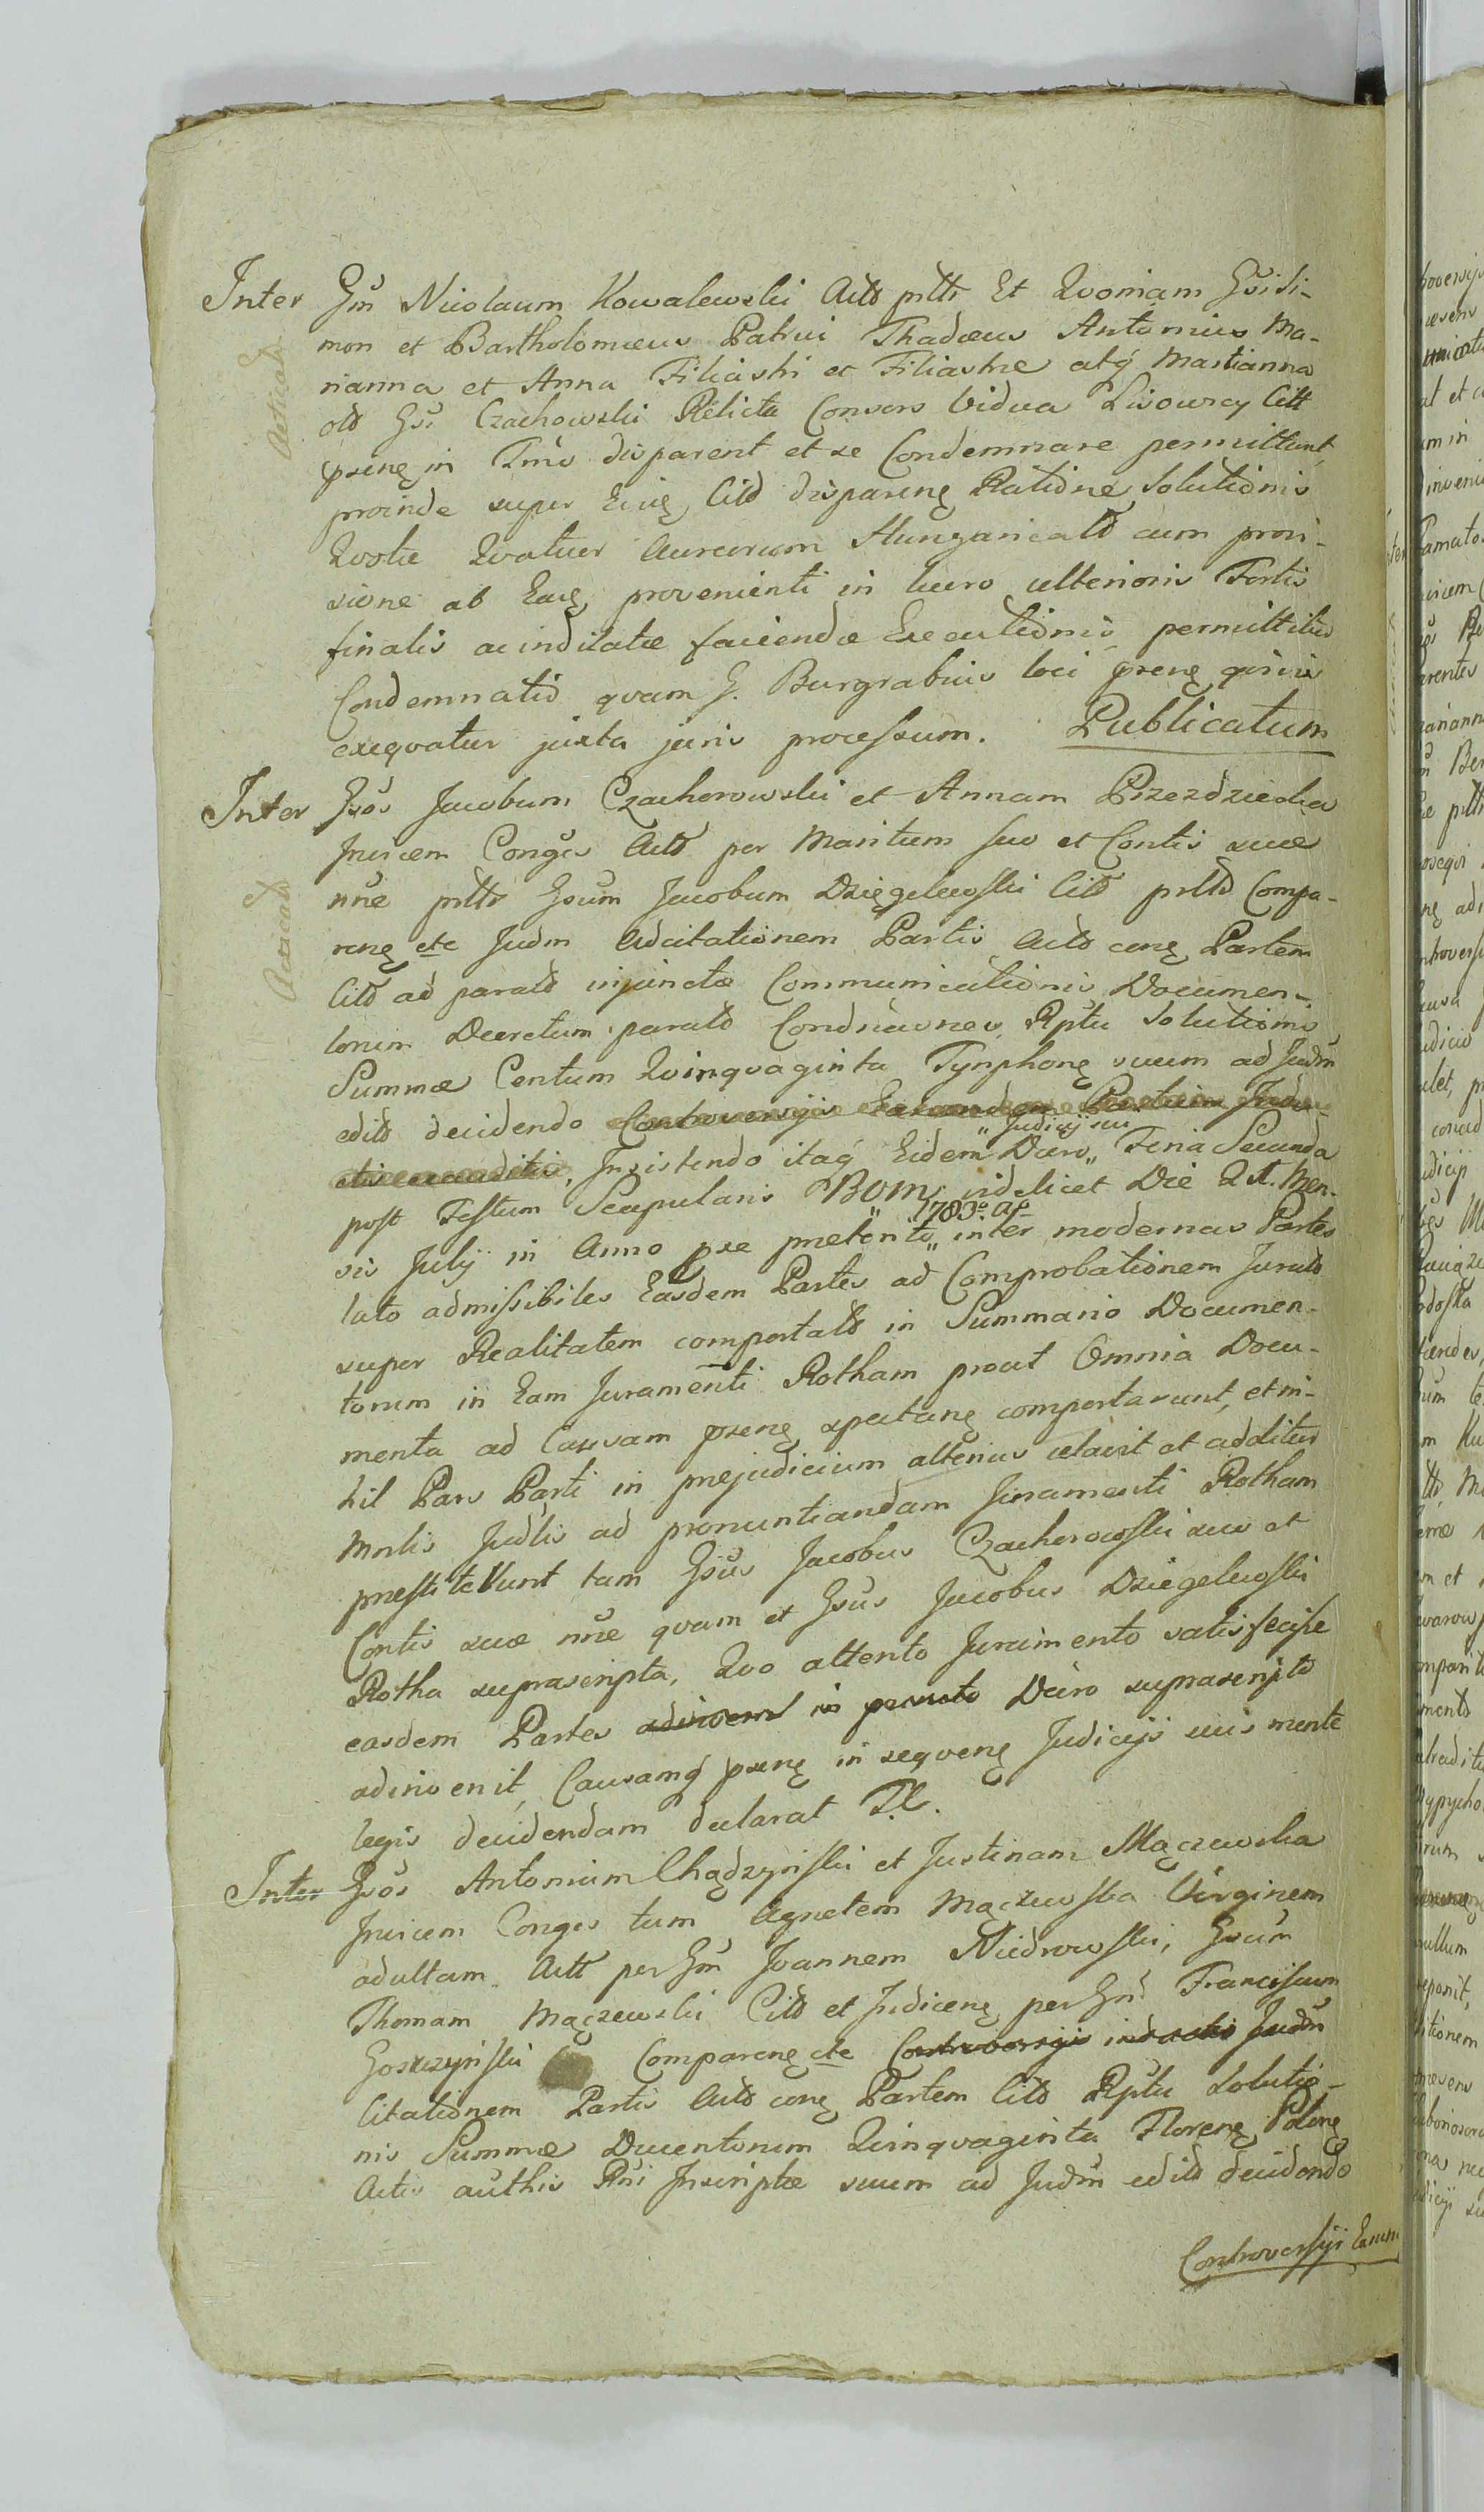 Inter Gm Nicolaum Kowalewski Actt pltt Et Qvoniam Gsi Si-
mon et Bartholomæus Patrui Thadæus Antonius Ma-
rianna et Anna Filiastri et Filiastræ atq Marianna
olt Gsi Czachowski Relicta Consors Vidua Lisowscy Citt
psenę in Tmo disparent et se Condemnare permittunt,
proinde super Eisę Citt disparenę Ratione Solutionis
Qvotæ Qvatuor Aureorum Hungaricalt cum provi-
sione ab Easę provenienti in lucro ulterioris Fortis
finalis ac inditatæ faciendæ Executionis permittitur
Condemnatio qvam G. Burgrabius loci psenę
exeqvatur juxta juris processum. Publicatum
Inter Gsos Jacobum Czachorowski et Annam Przezdziecka
Invicem Conges Actt per Maritum suo et Contis suæ
nne pltt Gsum Jacobum Dzięgelewski Citt pltt Compa-
renę etc Judm Adcitationem Partis Actt conę Partem
Citt ad paratt injunctæ Communicationis Documen-
torum Decretum paratt Rptu Solutionis
Summæ Centum Qvinqvaginta Tynphonę suum ad Judm
editt decidendo Controversijs Earumdem Partium Indu-
ctis exauditis, Insistendo itaq Eidem Dcro „ Judicij sui „ Feria Secunda
post Festum Scapularis BVM videlicet Die 21. Men-
sis Julij in Anno pse præterito „ 1783o ao „ inter modernas Partes
lato admissibiles Easdem Partes ad Comprobationem Juratt
super Realitatem comportatt in Summario Documen-
torum in Eam Juramenti Rotham prout Omnia Docu-
menta ad Causam psenę spectanę comportarunt, et ni-
hil Pars Parti in præjudicium alterius celavit et additur
Mrlis Judlis ad pronuntiandam Juramenti Rotham
præstiterunt tam Gsus Jacobus Czachorowski suo et
Contis suæ nne qvam et Gsus Jacobus Dziegelewski
Rotha suprascripta, Qvo attento Juramento satisfecisse
easdem Partes adinvenit in Dcro suprascripto
adinvenit, Causamq psenę in seqvenę Judicijs suis mente
legis decidendam declarat P.l.
Inter Gsos Antonium Chądzyński et Justinam Mączewska
Invicem Conges tum Agnetem Mączewska Virginem
adultam Actt per Gm Joannem Niedrowski, Gsum
Thomam Mączewski Citt et Indicenę per Gm Franciscum
Goszczyński Comparenę etc Controversijs inductis Judm
Citationem Partis Actt conę Partem Citt Rptu Solutio-
nis Summæ Ducentorum Qvinqvaginta Florenę Polonę
Actis authis Rni Inscriptæ suum ad Judm editt decidendo
Controversijs Earum